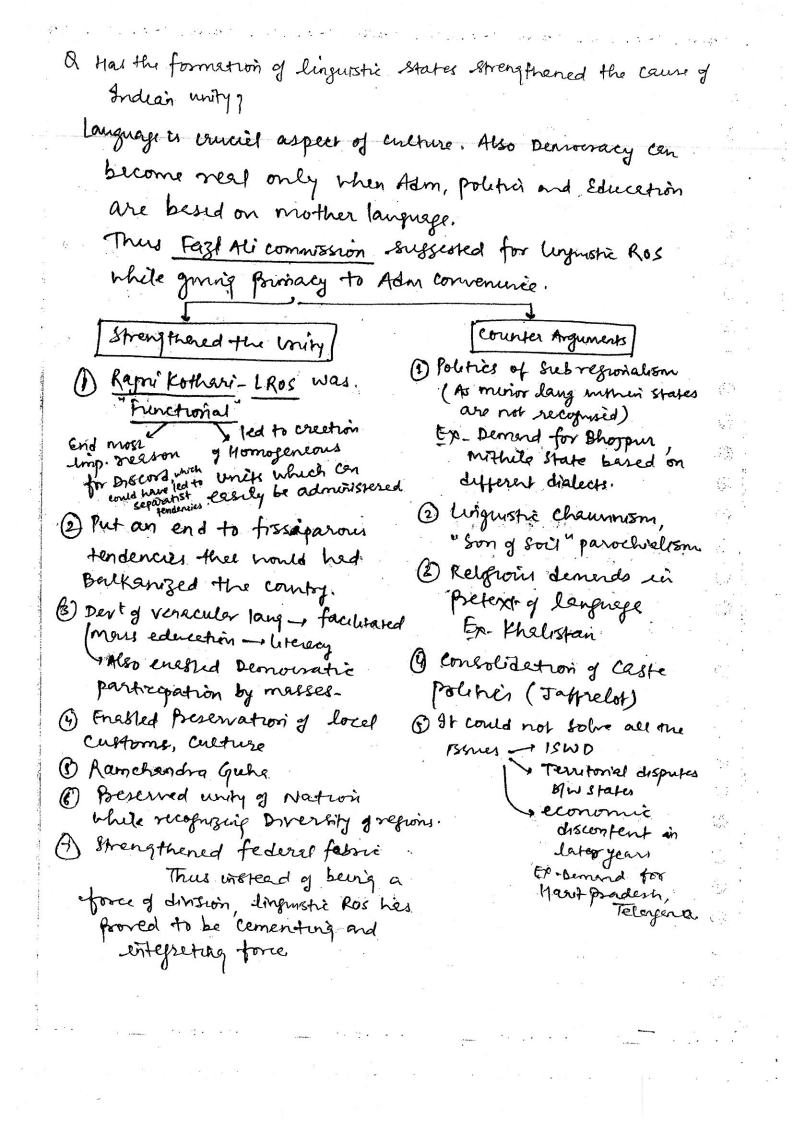 Q Has the formation of linguistic states strengthened the cause of
Indian unity?
Language is crucial aspect of culture. Also Democracy can
become real only when Adm, politics and Education
are based on mother language.
Thus Fazl Ali commission suggested for linguistic ROS
while giving Primacy to Adm convenience.
Strengthened the Unity
① Rajni Kothari - LROS was
"Functional"
End most
imp. reason
for Discord which
could have led to
separatist
tendencies
led to creation
of Homogeneous
units which can
easily be administered
② Put an end to fissiparous
tendencies that would had
Balkanized the country.
③ Devt of veracular lang → facilitated
mass education → literacy
Also enabled Democratic
participation by masses-
④ Enabled Preservation of local
customs, culture
⑤ Ramchandra Guha
⑥ Preserved unity of Nation
while recognizing Diversity of regions.
⑦ Strengthened federal fabric
Thus instead of being a
force of division, linguistic ROS has
proved to be cementing and
integrating force
Counter Arguments
① Politics of Subregionalism
(As minor lang within states
are not recognised)
Ex- Demand for Bhojpur,
Mithila State based on
different dialects.
② linguistic chauvinism,
"Son of Soil" parochialism
③ Religious demands in
pretext of language
Ex- Khalistan
④ consolidation of Caste
politics (Jaffrelot)
⑤ It could not solve all the
issues → ISWD
→ Territorial disputes
b/w states
→ economic
discontent in
later years
Ex-Demand for
Harit pradesh,
Telengana